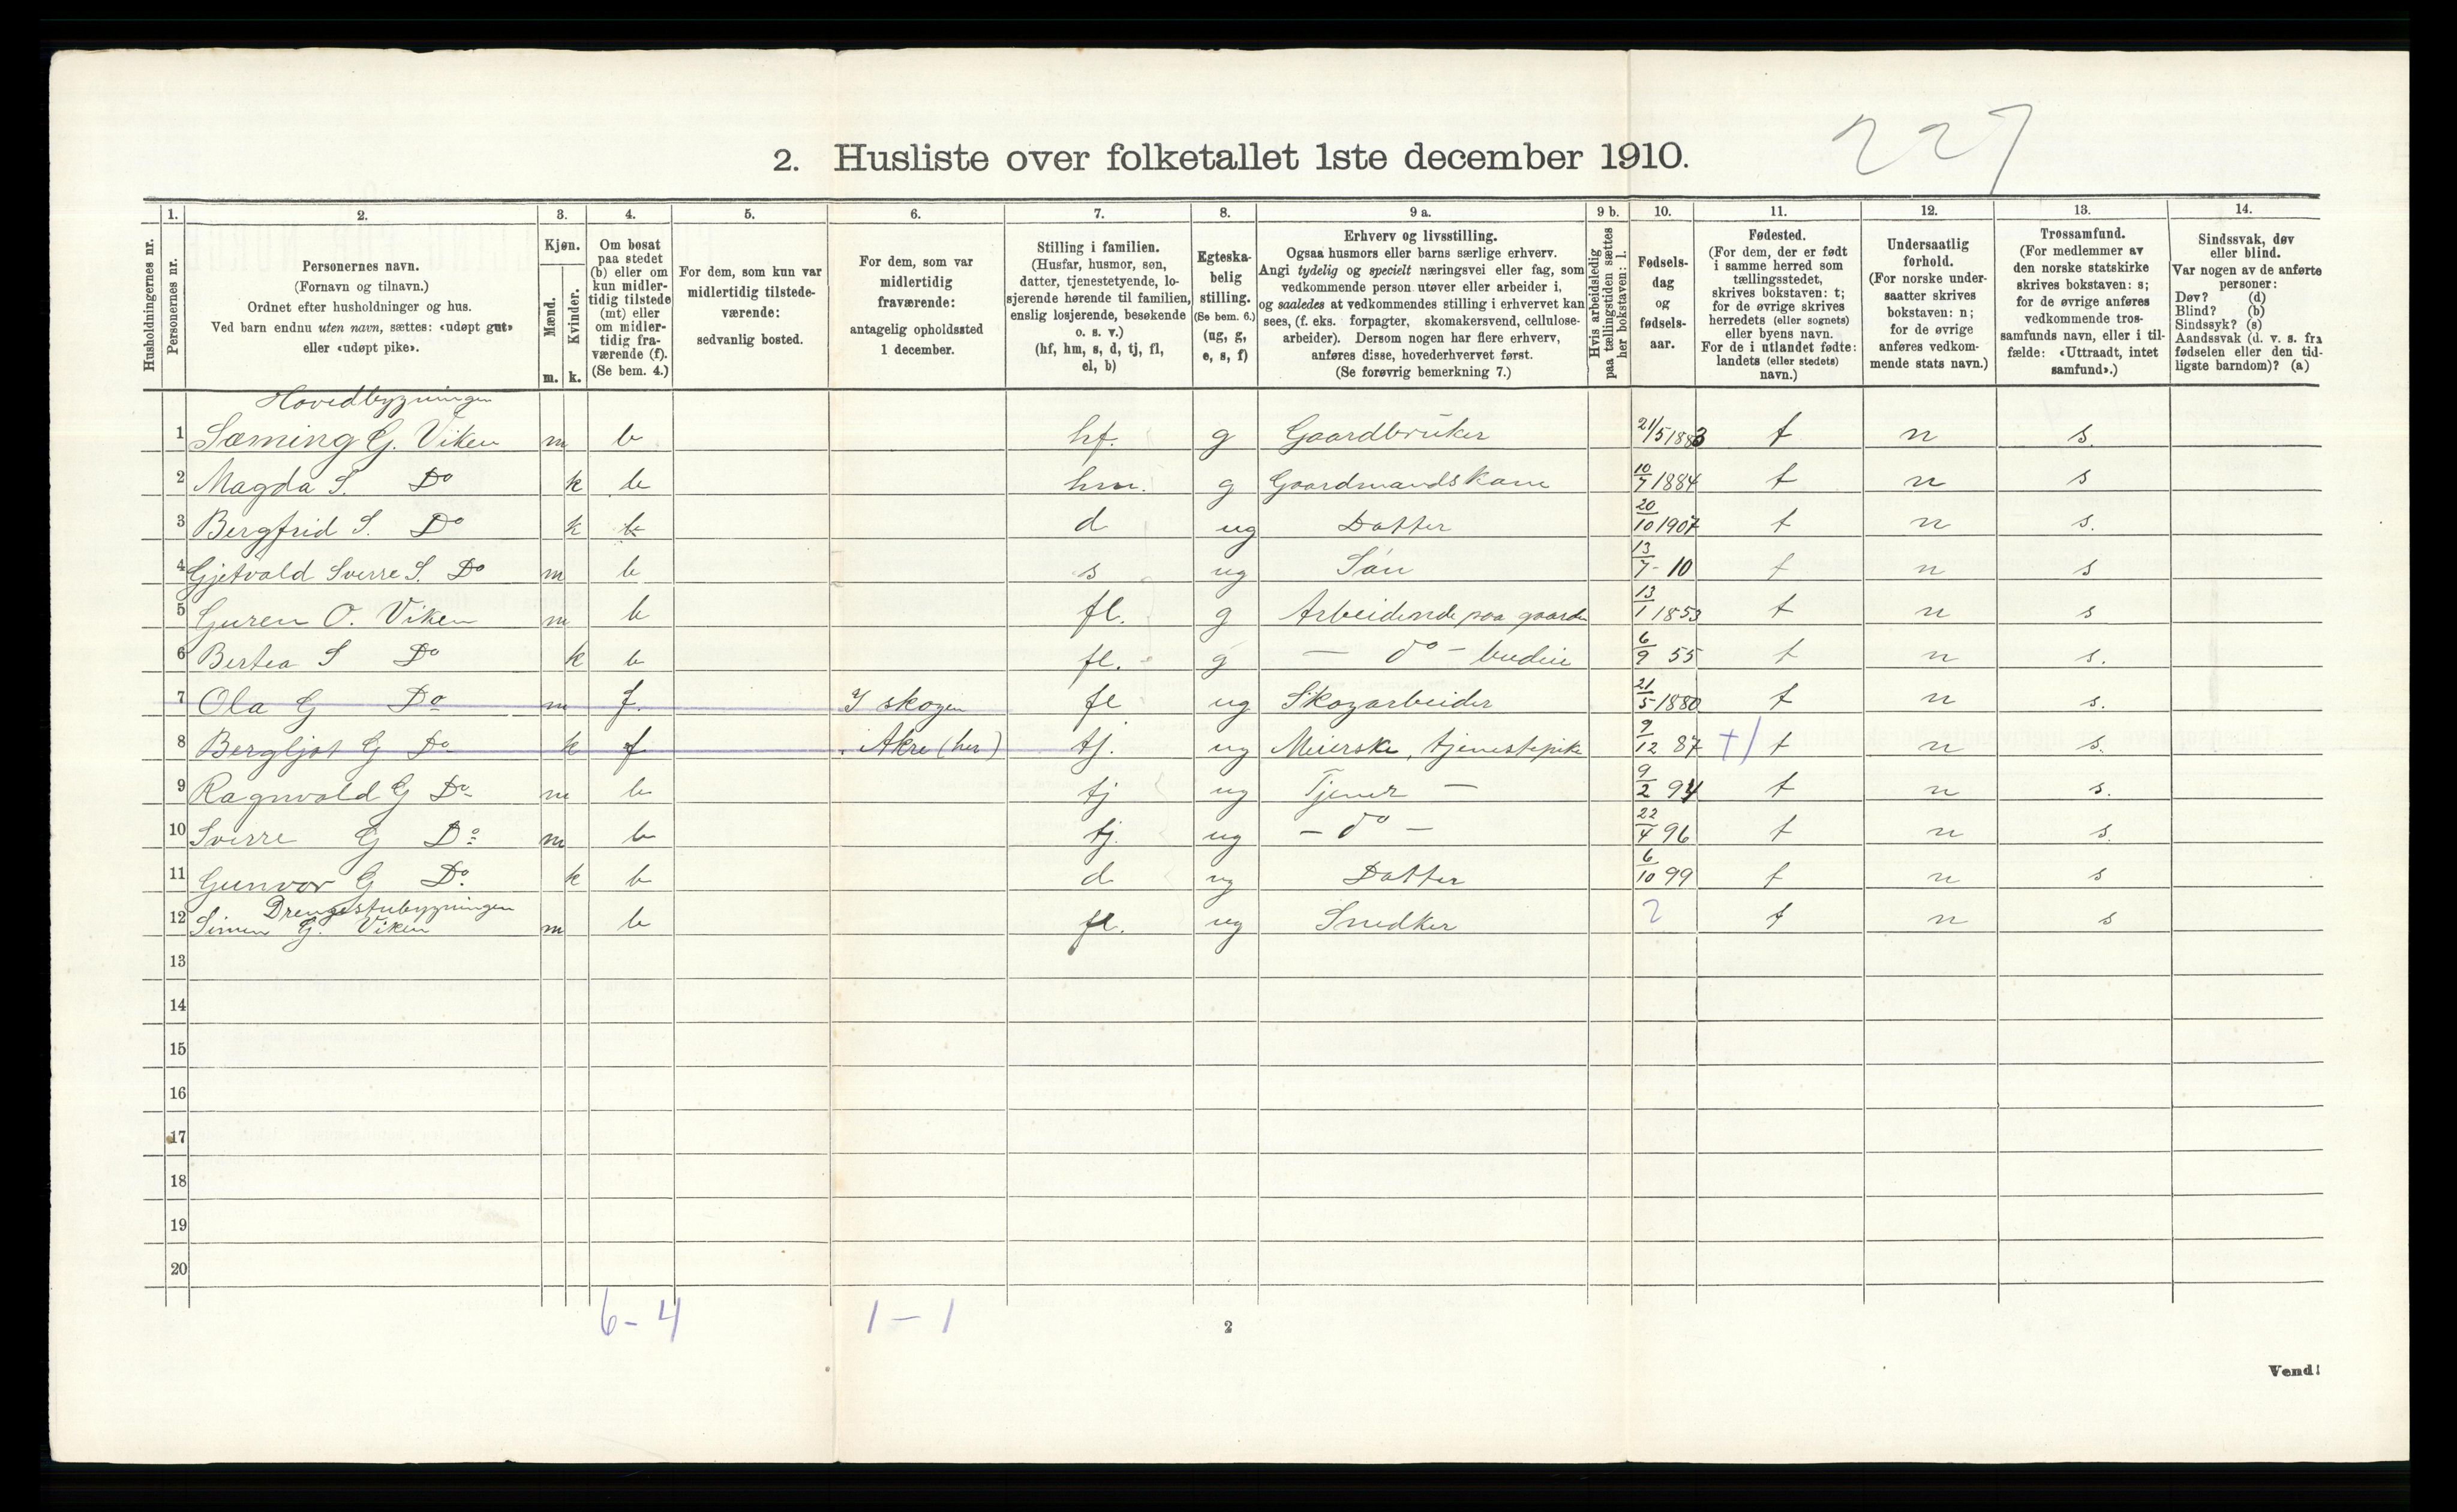 227
2. Husliste over folketallet 1ste december 1910.
Husholdningernes nr.
1. Personernes nr.
2. Personernes navn.
(Fornavn og tilnavn.)
Ordnet efter husholdninger og hus.
Ved barn endnu uten navn, sættes: «udøpt gut»
eller «udøpt pike».
3. Kjøn.
Mænd. m.
Kvinder. k.
4. Om bosat
paa stedet
(b) eller om
kun midler-
tidig tilstede
(mt) eller
om midler-
tidig fra-
værende (f).
(Se bem. 4.)
5. For dem, som kun var
midlertidig tilstede-
værende:
sedvanlig bosted.
6. For dem, som var
midlertidig
fraværende:
antagelig opholdssted
1 december.
7. Stilling i familien.
(Husfar, husmor, søn,
datter, tjenestetyende, lo-
sjerende hørende til familien,
enslig losjerende, besøkende
o. s. v.)
(hf, hm, s, d, tj, fl,
el, b)
8. Egteska-
belig
stilling.
(Se bem. 6.)
(ug, g,
e, s, f)
9 a. Erhverv og livsstilling.
Ogsaa husmors eller barns særlige erhverv.
Angi tydelig og specielt næringsvei eller fag, som
vedkommende person utøver eller arbeider i,
og saaledes at vedkommendes stilling i erhvervet kan
sees, (f. eks. forpagter, skomakersvend, cellulose-
arbeider). Dersom nogen har flere erhverv,
anføres disse, hovederhvervet først.
(Se forøvrig bemerkning 7.)
9 b. Hvis arbeidsledig
paa tællingstiden sættes
her bokstaven: l.
10. Fødsels-
dag
og
fødsels-
aar.
11. Fødested.
(For dem, der er født
i samme herred som
tællingsstedet,
skrives bokstaven: t;
for de øvrige skrives
herredets (eller sognets)
eller byens navn.
For de i utlandet fødte:
landets (eller stedets)
navn.)
12. Undersaatlig
forhold.
(For norske under-
saatter skrives
bokstaven: n;
for de øvrige
anføres vedkom-
mende stats navn.)
13. Trossamfund.
(For medlemmer av
den norske statskirke
skrives bokstaven: s;
for de øvrige anføres
vedkommende tros-
samfunds navn, eller i til-
fælde: «Uttraadt, intet
samfund».)
14. Sindssvak, døv
eller blind.
Var nogen av de anførte
personer:
Døv? (d)
Blind? (b)
Sindssyk? (s)
Aandssvak (d. v. s. fra
fødselen eller den tid-
ligste barndom)? (a)
Hovedbygningen
1 Sæming G. Viken m b hf. g Gaardbruker 21/5 1883 t n s.
2 Magda S. Do k b hm. g Gaardmandskone 10/7 1884 t n s
3 Bergfrid S. Do k b d ug Datter 20/10 1907 t n s.
4 Gjetvald Sverre S. Do m b s ug Søn 13/7 - 10 t n s
5 Guren O. Viken m b fl. g Arbeidende paa gaarden 13/1 1853 t n s
6 Bertea S Do k b fl. g — do — budeie 6/9 55 t n s.
7 Ola G Do m f. I skogen fl ug Skogarbeider 21/5 1880 t n s.
8 Bergljot G Do k f Akre (her) tj. ug Meierske, tjenestepike 9/12 87 t n s.
9 Ragnvald G Do m b tj ug Tjener — 9/2 94 t n s.
10 Sverre G Do m b tj. ug — do — 22/4 96 t n s.
11 Gunvor G Do. k b d ug Datter 6/10 99 t n s
Drengestubygningen
12 Simen G. Viken m b fl. ug Snedker ? t n s
13
14
15
16
17
18
19
20
6 - 4
1 - 1
2
Vend!